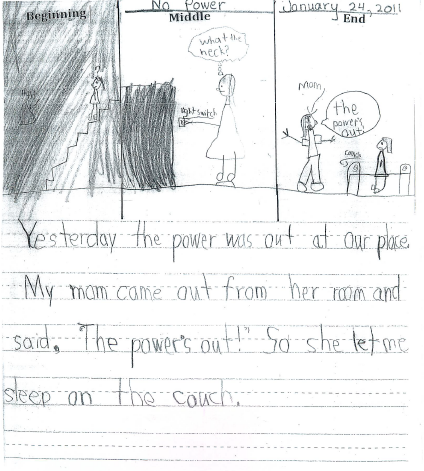 No Power January 24, 2011
Beginning Middle End
what the
heck?
light switch
Mom
the
power's
out!
couch
Yesterday the power was out at our place.
My mom came out from her room and
said, "The power's out!" So she let me
sleep on the couch.